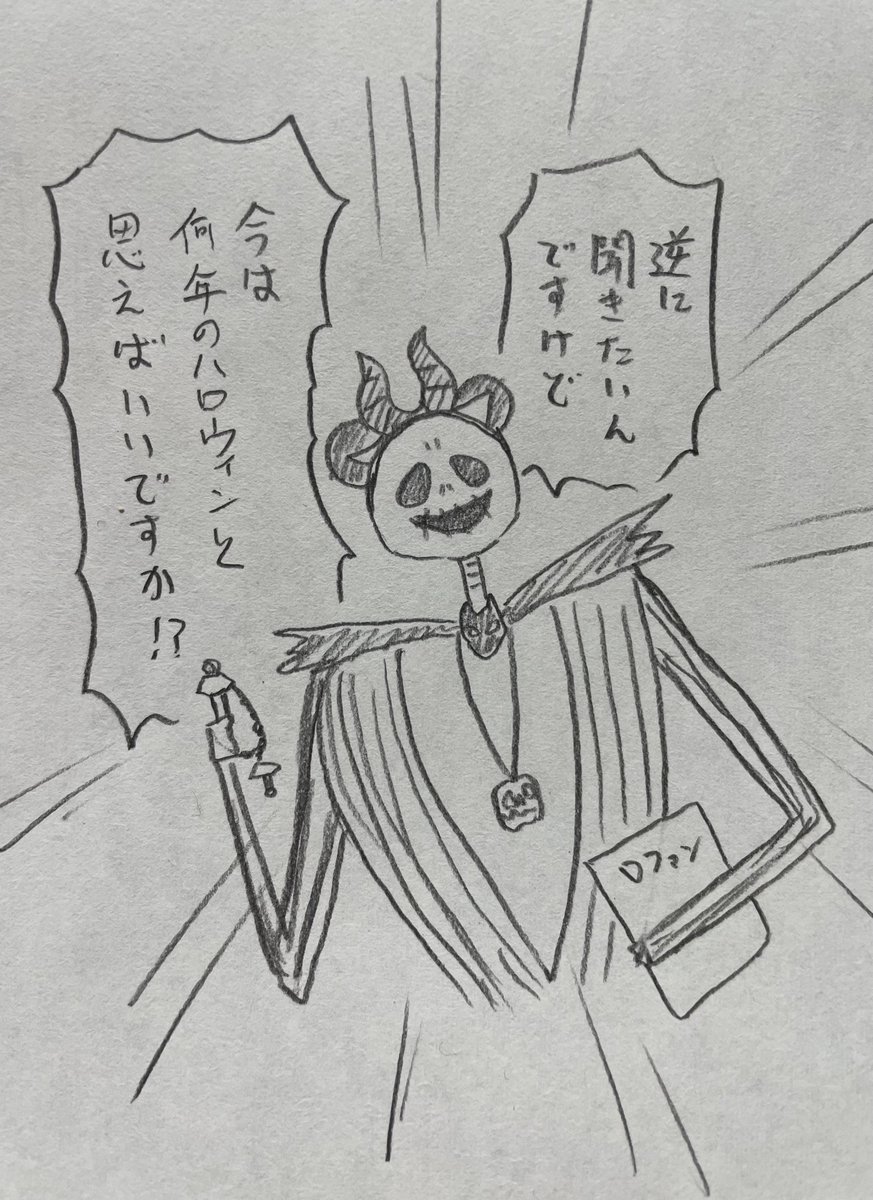 逆に
聞きたいん
ですけど
今は
何年のハロウィンと
思えばいいですか!?
ロフマン